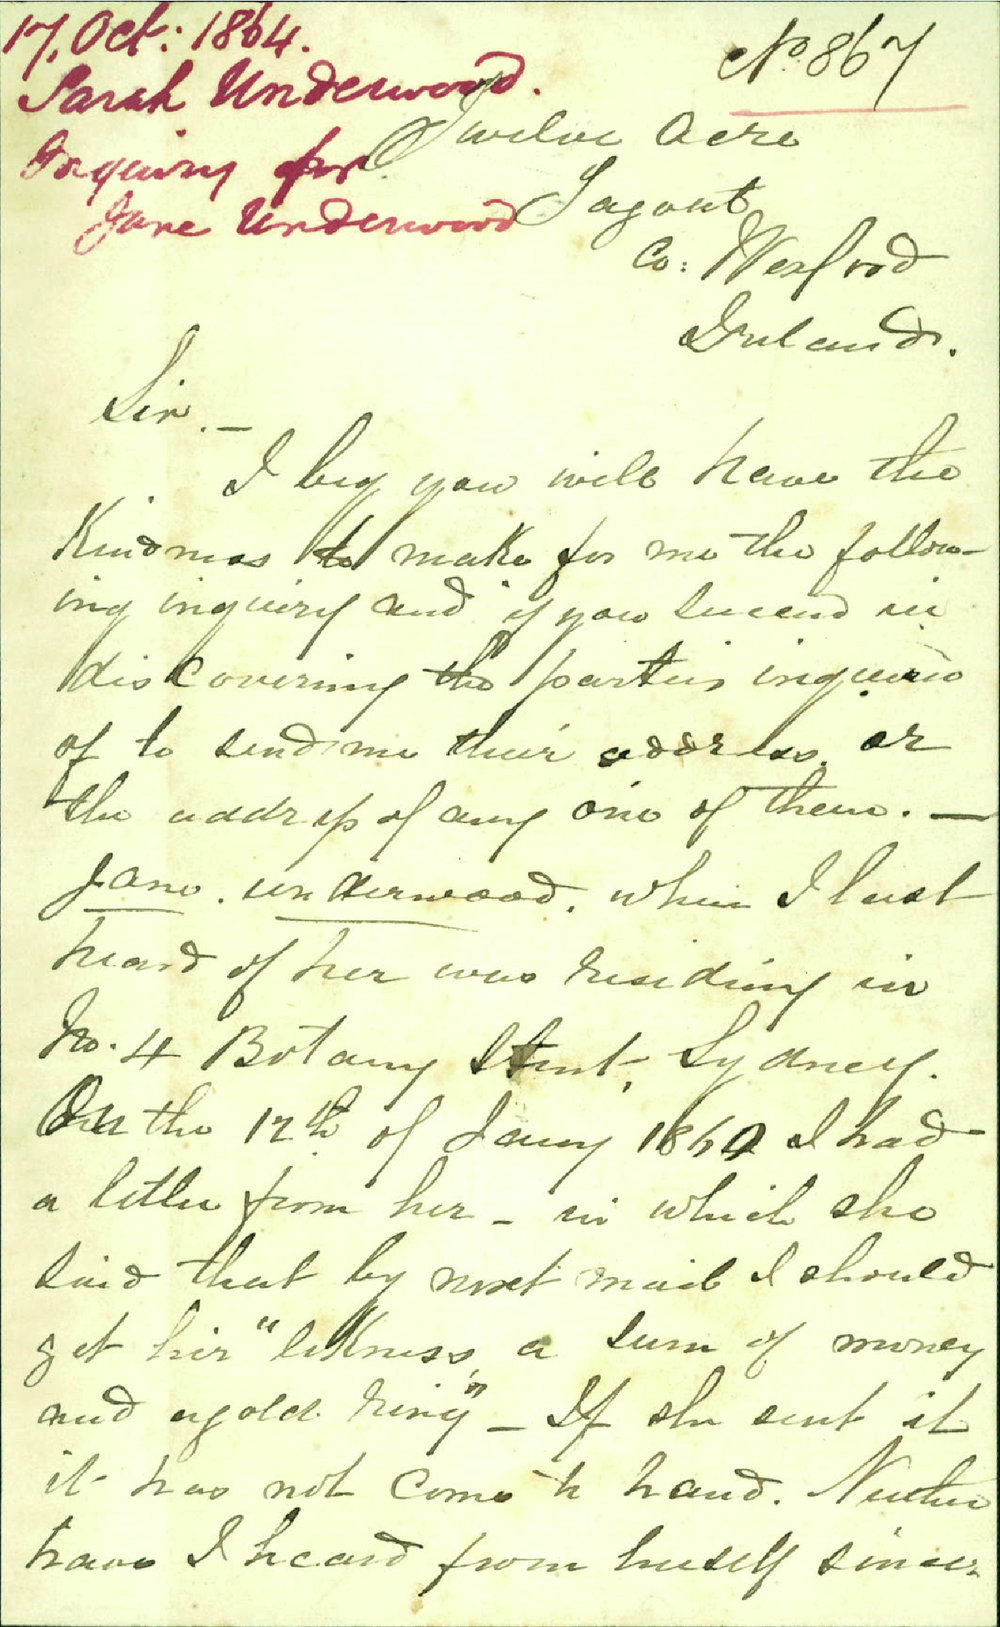 17. Oct: 1864.
Sarah Underwood.
Inquiry for
Jane Underwood
No. 867
Twelve Acre
Tagoat
Co: Wexford
Ireland.
Sir. —
I beg you will have the
kindness to make for me the follow-
ing inquiry and if you succeed in
discovering the parties inquired
of to send me their address. or
the address of any one of them. —
Jane. underwood. when I last
heard of her was residing in
No. 4 Botany Street, Sydney.
On the 17th of Jany 1860 I had
a letter from her — in which she
said that by next mail I should
get her "likness, a sum of money
and a gold ring" — If she sent it
it has not come to hand. Neither
have I heard from herself since.